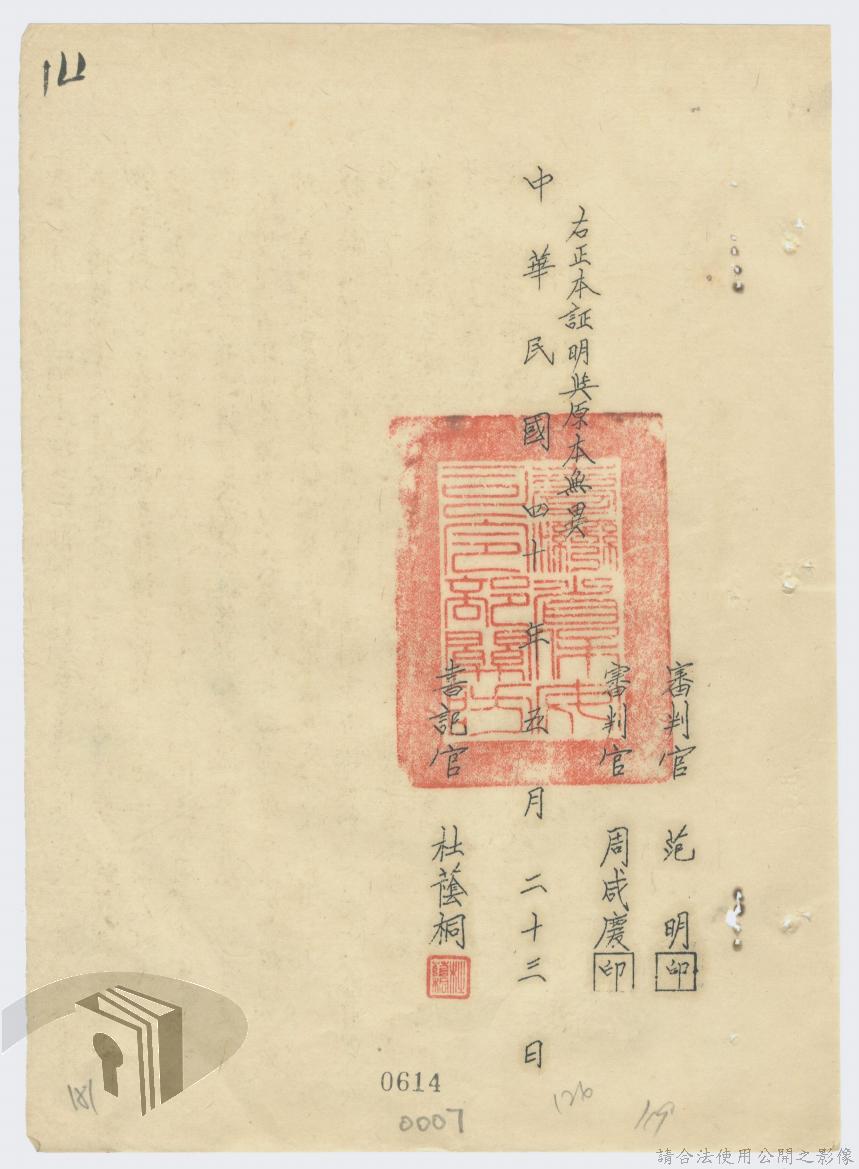 審判官 范明 印
審判官 周咸慶 印
右正本証明與原本無異
中華民國四十年五月二十三日
書記官 杜蔭桐
0614
0007
181
126
請合法使用公開之影像